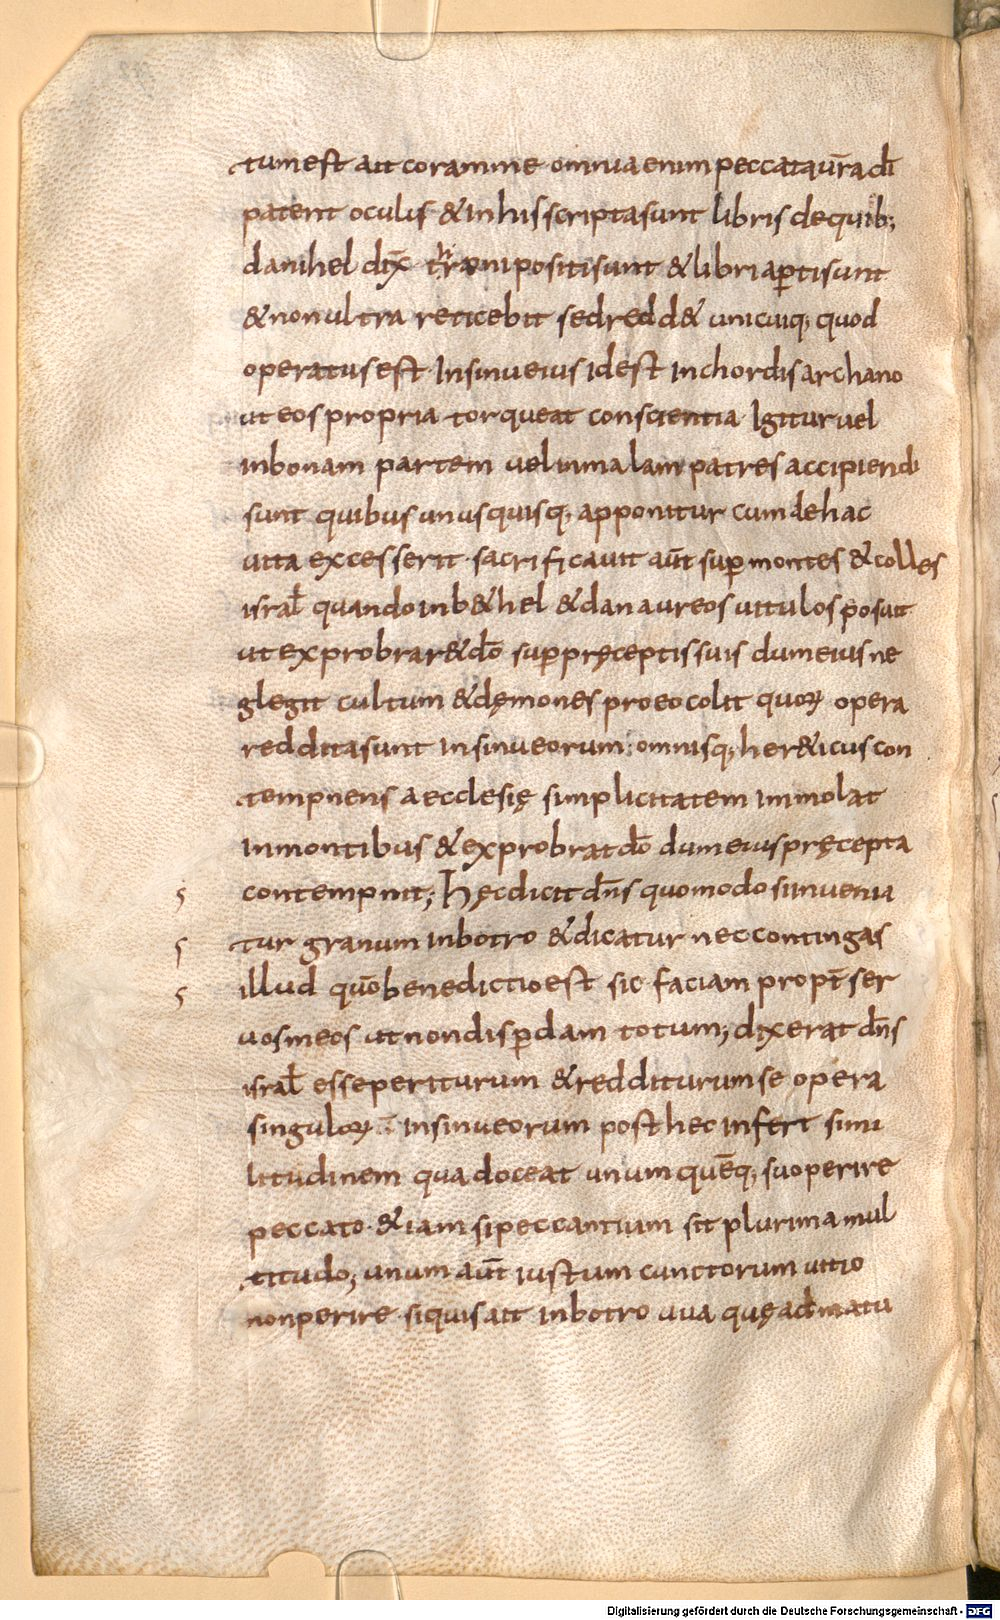 tum est ait coram me omnia enim peccata ur̄a dī
patent oculis & in his scripta sunt libris de quib;
danihel dix̄ throni positi sunt & libri ap̲ti sunt
& non ultra reticebit sed redd& unicuiq; quod
operatus est · In sinu eius id est in chordis archano
ut eos propria torqueat conscientia · Igitur uel
in bonam partem uel in malam patres accipiendi
sunt quibus unusquisq; apponitur cum de hac
uita excesserit · sacrificauit aūt sup̲ montes & colles
israł quando in b&hel & dan aureos uitulos posuit
ut exprobrar& dō sup̲ pręceptis suis dum eius ne
glegit cultum & dęmones pro eo colit quoꝝ opera
reddita sunt in sinu eorum : omnisq; her&icus con
tempnens aecclesię simplicitatem immolat
in montibus & exprobrat dō dum eius pręcepta
contempnit ; Hęc dicit dn̄s quomodo si inuenia
tur granum in botro & dicatur nec contingas
illud quō benedictio est sic faciam propt̄ ser
uos meos ut non disp̲dam totum ; dixerat dn̄s
israł esse periturum & redditurum se opera
singuloꝝ in sinu eorum post hec infert simi
litudinem qua doceat unum quēq; suo perire
peccato · & iam si peccantium sit plurima mul
titudo ; unum aūt iustum cunctorum uitio
non perire · si quis ait in botro uua quę ad matu
Digitalisierung gefördert durch die Deutsche Forschungsgemeinschaft - DFG